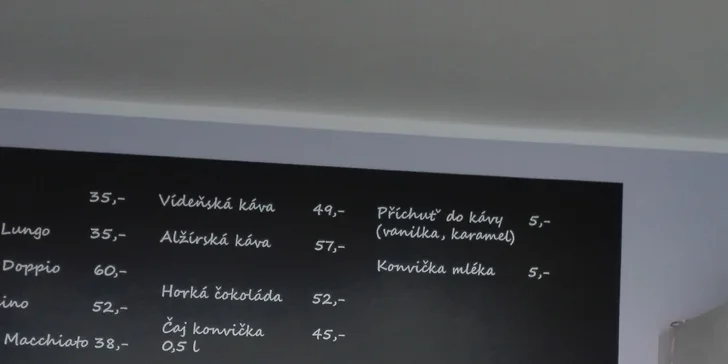 35,-
Lungo 35,-
Doppio 60,-
ino 52,-
Macchiato 38,-
Vídeňská káva 49,-
Alžírská káva 57,-
Horká čokoláda 52,-
Čaj konvička 45,-
0,5 l
Příchuť do kávy 5,-
(vanilka, karamel)
Konvička mléka 5,-